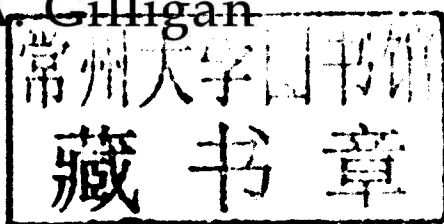 A. Gilligan
常州大学图书馆
藏书章